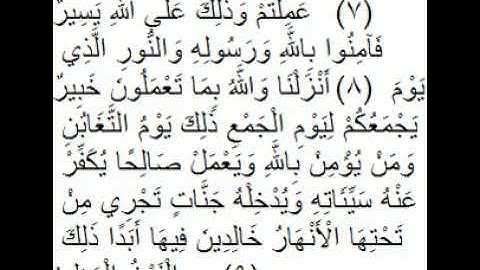 (٧) عَمِلْتُمْ وَذَلِكَ عَلَى اللَّهِ يَسِيرٌ
فَآمِنُوا بِاللَّهِ وَرَسُولِهِ وَالنُّورِ الَّذِي
يَوْمَ (٨) أَنْزَلْنَا وَاللَّهُ بِمَا تَعْمَلُونَ خَبِيرٌ
يَجْمَعُكُمْ لِيَوْمِ الْجَمْعِ ذَلِكَ يَوْمُ التَّغَابُنِ
وَمَنْ يُؤْمِنْ بِاللَّهِ وَيَعْمَلْ صَالِحًا يُكَفِّرْ
عَنْهُ سَيِّئَاتِهِ وَيُدْخِلْهُ جَنَّاتٍ تَجْرِي مِنْ
تَحْتِهَا الْأَنْهَارُ خَالِدِينَ فِيهَا أَبَدًا ذَلِكَ